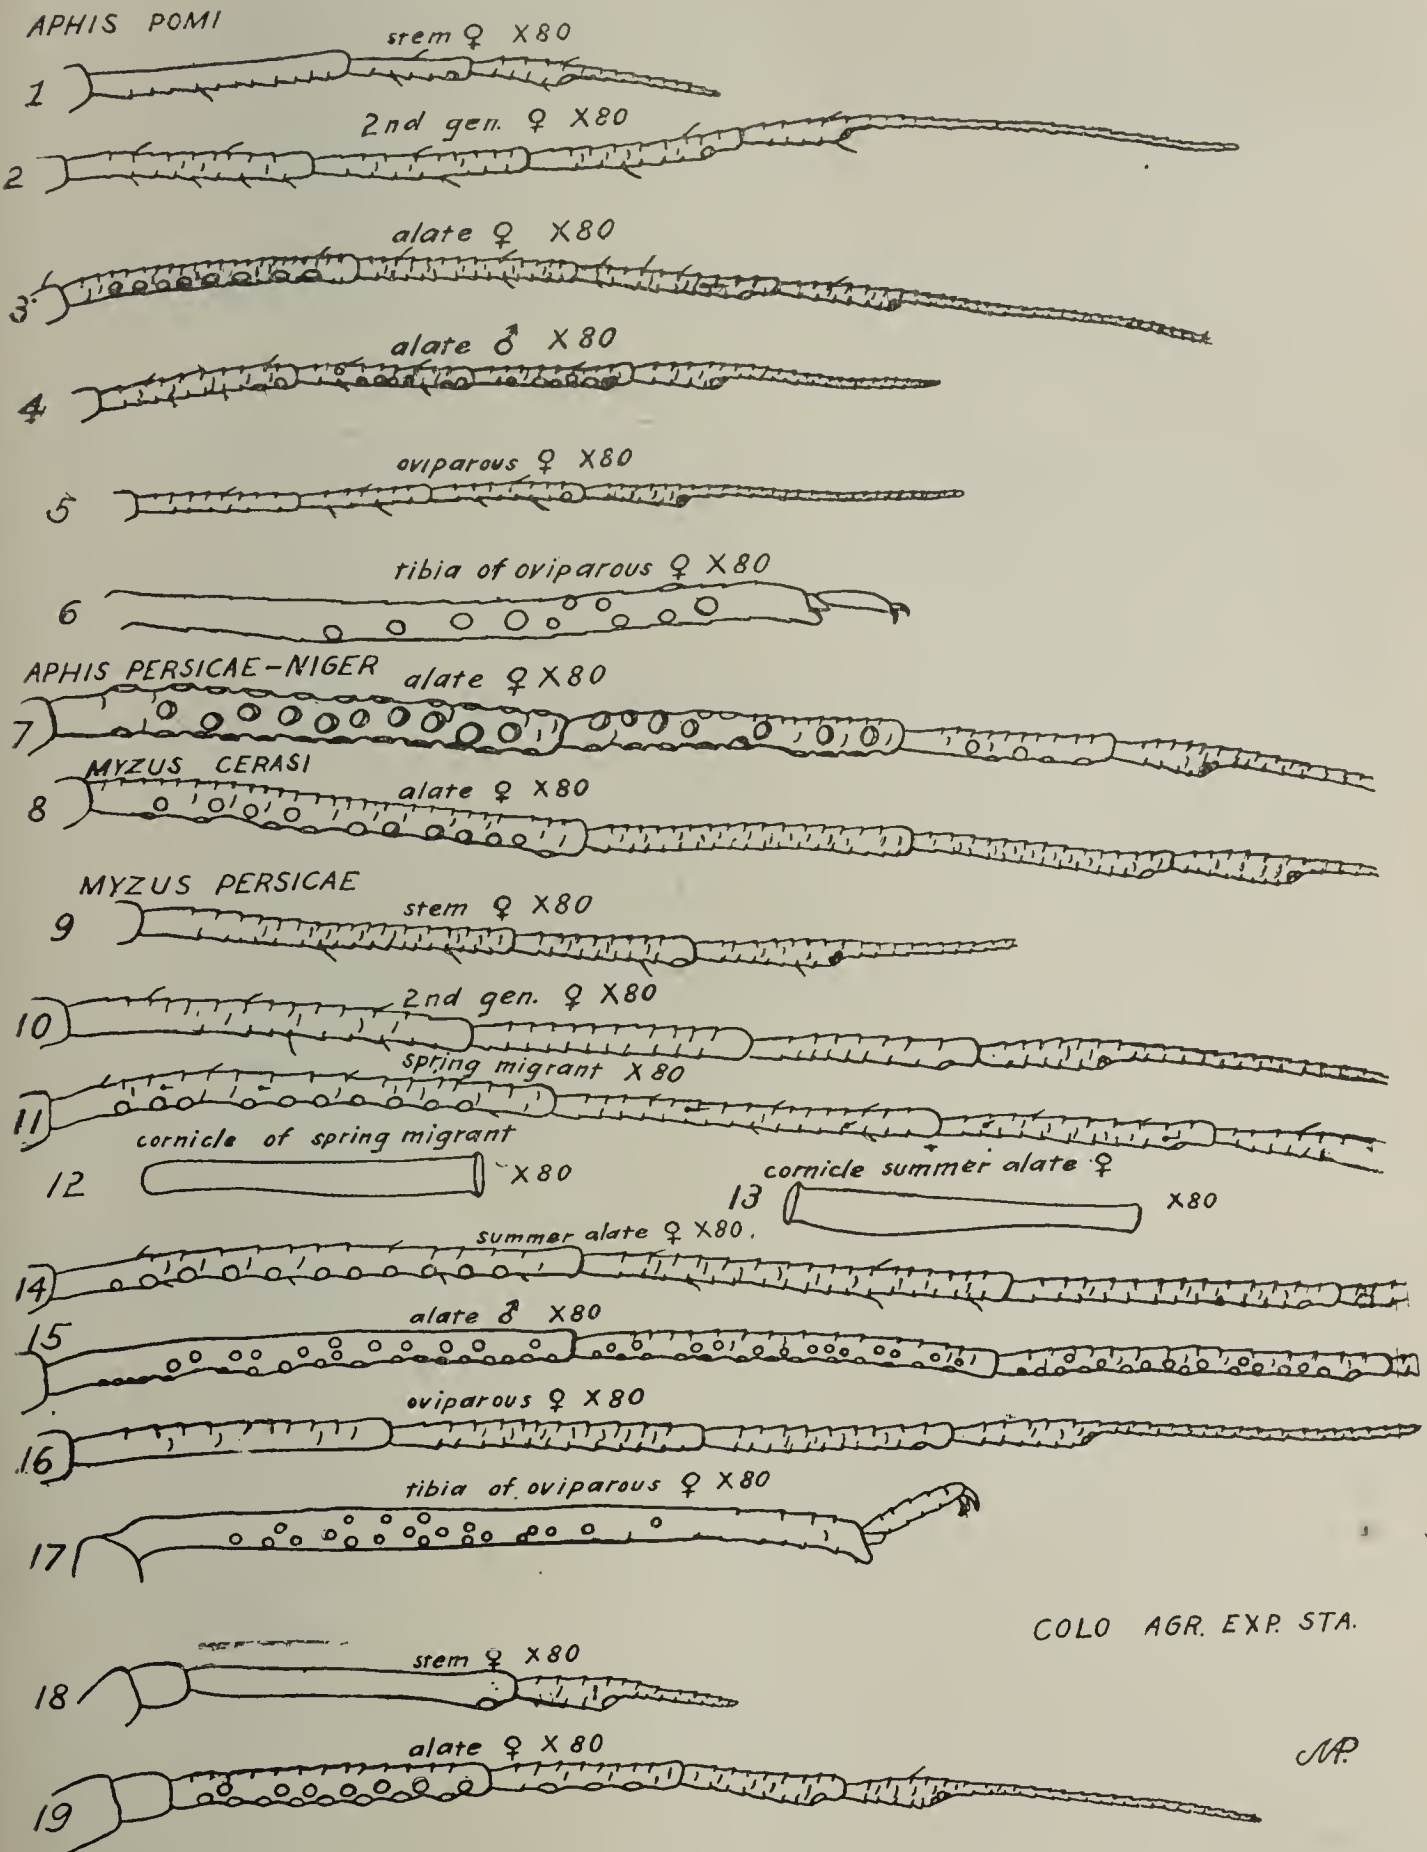 APHIS POMI
stem ♀ X80
1
2nd gen. ♀ X80
2
alate ♀ X80
3
alate ♂ X80
4
oviparous ♀ X80
5
tibia of oviparous ♀ X80
6
APHIS PERSICAE-NIGER alate ♀ X80
7
MYZUS CERASI
alate ♀ X80
8
MYZUS PERSICAE
stem ♀ X80
9
2nd gen. ♀ X80
10
spring migrant X80
11
cornicle of spring migrant
12 X80
cornicle summer alate ♀
13 X80
summer alate ♀ X80.
14
alate ♂ X80
15
oviparous ♀ X80
16
tibia of oviparous ♀ X80
17
COLO AGR. EXP. STA.
stem ♀ X80
18
alate ♀ X80
19